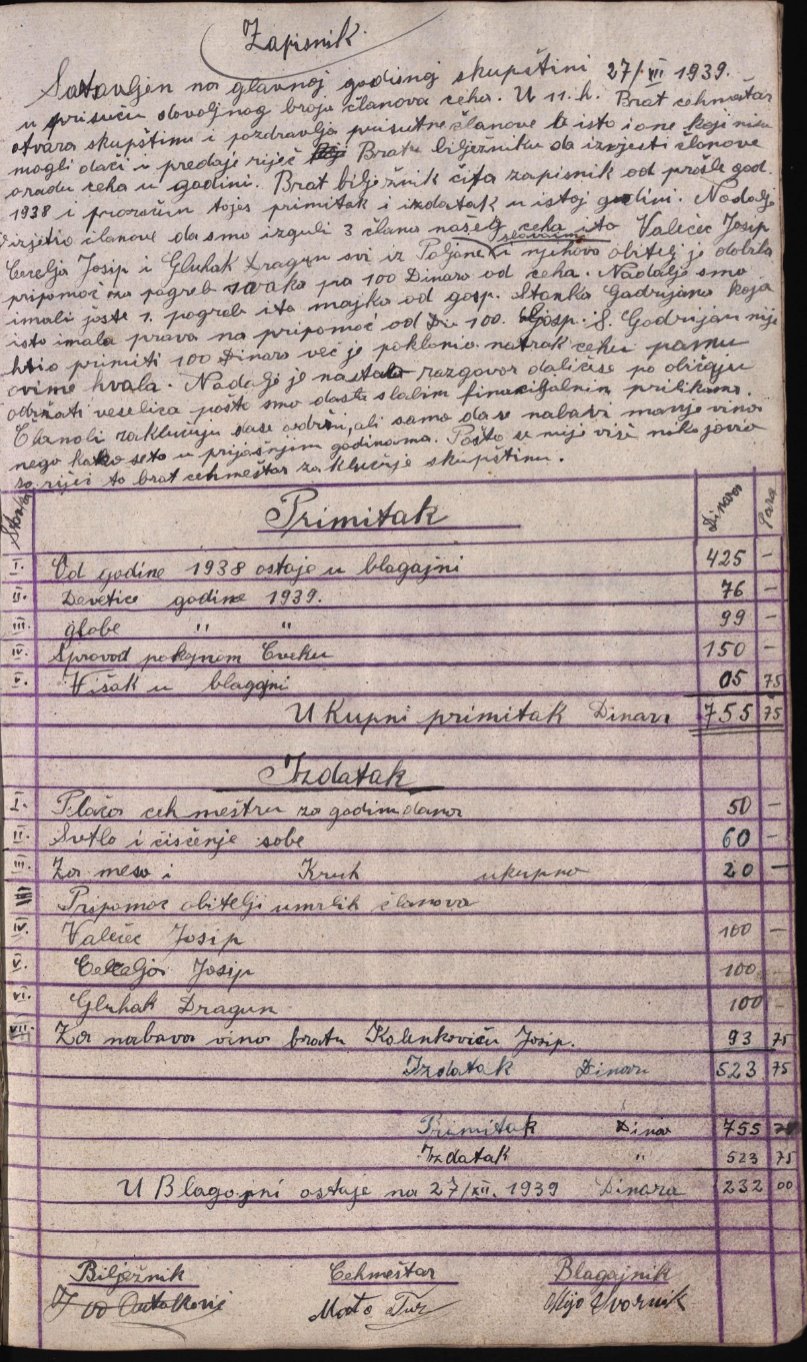 Zapisnik.
Sastavljen na glavnoj godisnoj skupštini 27/XII 1939.
u prisuću dovoljnog broja članova ceha. U 11. h. Brat cehmeštar
otvara skupštinu i pozdravlja prisutne članove te isto i one koji nisu
mogli doći i predaje riječ Bratu bilježniku da izvjesti članove
o radu ceha u godini. Brat bilježnik čita zapisnik od prošle god.
1938 i proračun tojes primitak i izdatak u istoj godini. Nadalje
izvjetio članove da smo izgubi 3 člana našeg ceha i to Valečec Josip
slovima
Cerelja Josip i Gluhak Dragun svi iz Poljanec i njihova obitelj je dobila
pripomoć na pogreb svaka po 100 Dinara od ceha. Nadalje smo
imali jošte 1. pogreb i to majka od gosp. Stanka Gadrijana koja
isto imala prava na pripomoć od Din 100. Gosp. S. Godrijan nije
htio primiti 100 Dinara već je poklonio natrak cehu
ovime hvala. Nadalje je nastala razgovor dalićese po običaju
održati veselica pošto smo dosta slabim financijalnim prilikama.
Članoli zaključuju dase održi, ali samo dase nabavi manje vina
nego kako seto u prijašnjim godinama. Pošto se nije više niko javio
za riječ to brat cehmeštar zaključuje skupštinu.
Stavka Primitak Dinara Para
I. Od godine 1938 ostaje u blagajni 425 -
II. Devetice godine 1939. 76 -
III. globe " " 99 -
IV. Sprovod pokojnom Cveku 150 -
V. Višak u blagajni 05 75
U Kupni primitak Dinara 755 75
Izdatak
I. Plaća cehmeštru za godinu dana 50 -
II. Svetlo i čiščenje sobe 60 -
III. Za meso i Kruh ukupno 20 -
Pripomoć obitelji umrlih članova
IV. Valečec Josip 100 -
V. Cerelja Josip 100 -
VI. Gluhak Dragun 100 -
VII. Za nabava vina bratu Kolenkoviću Josip. 93 75
Izdatak Dinara 523 75
Primitak Dinar 755 75
Izdatak " 523 75
U Blagajni ostaje na 27/XII. 1939 Dinara 232 00
Bilježnik Cehmeštar Blagajnik
Mato Tur Mijo Dvornik